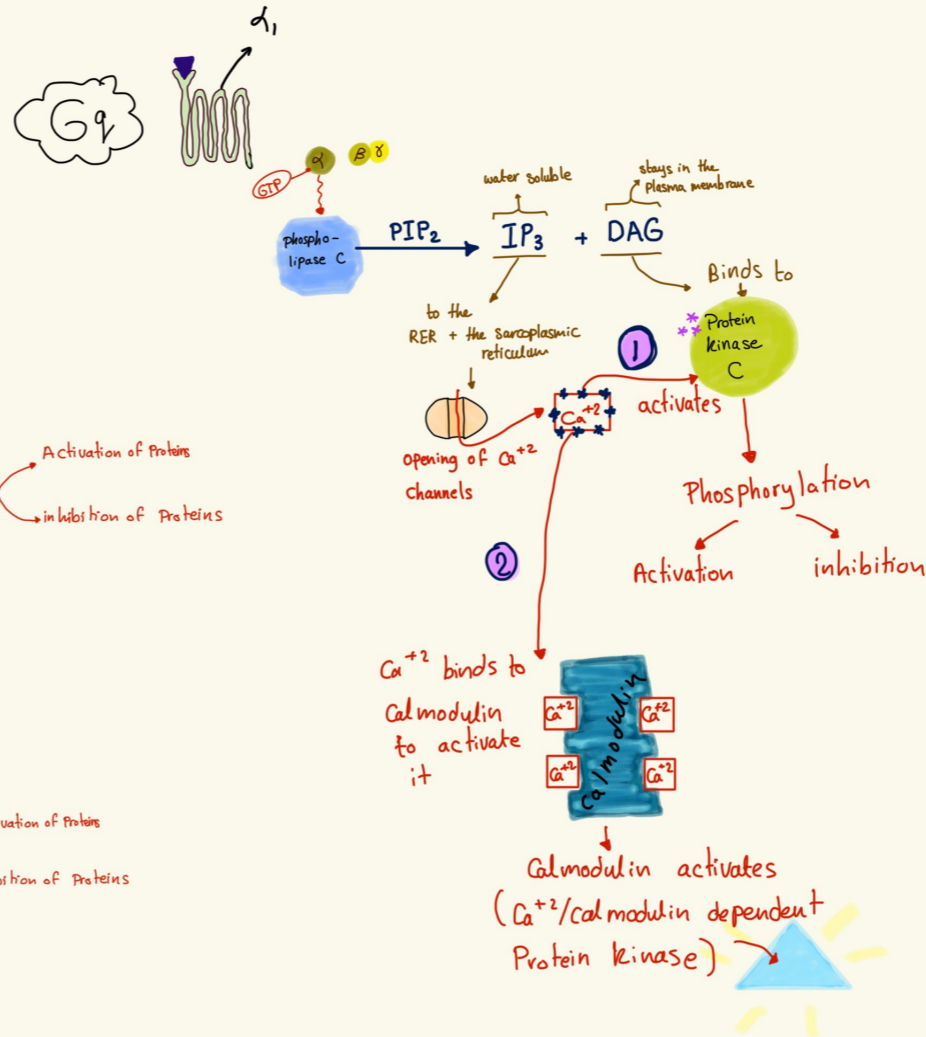 α₁
Gq
α
β γ
GTP
phospho-
lipase C
PIP₂
water soluble
IP₃ + DAG
stays in the
plasma membrane
Binds to
Protein
kinase
C
to the
RER + the sarcoplasmic
reticulum
1
Ca⁺²
activates
opening of Ca⁺²
channels
Phosphorylation
Activation
inhibition
Activation of Proteins
inhibition of Proteins
2
Ca⁺² binds to
Calmodulin
to activate
it
Ca⁺²
Ca⁺²
Ca⁺²
Ca⁺²
calmodulin
uation of Proteins
ition of Proteins
Calmodulin activates
(Ca⁺²/calmodulin dependent
Protein kinase)